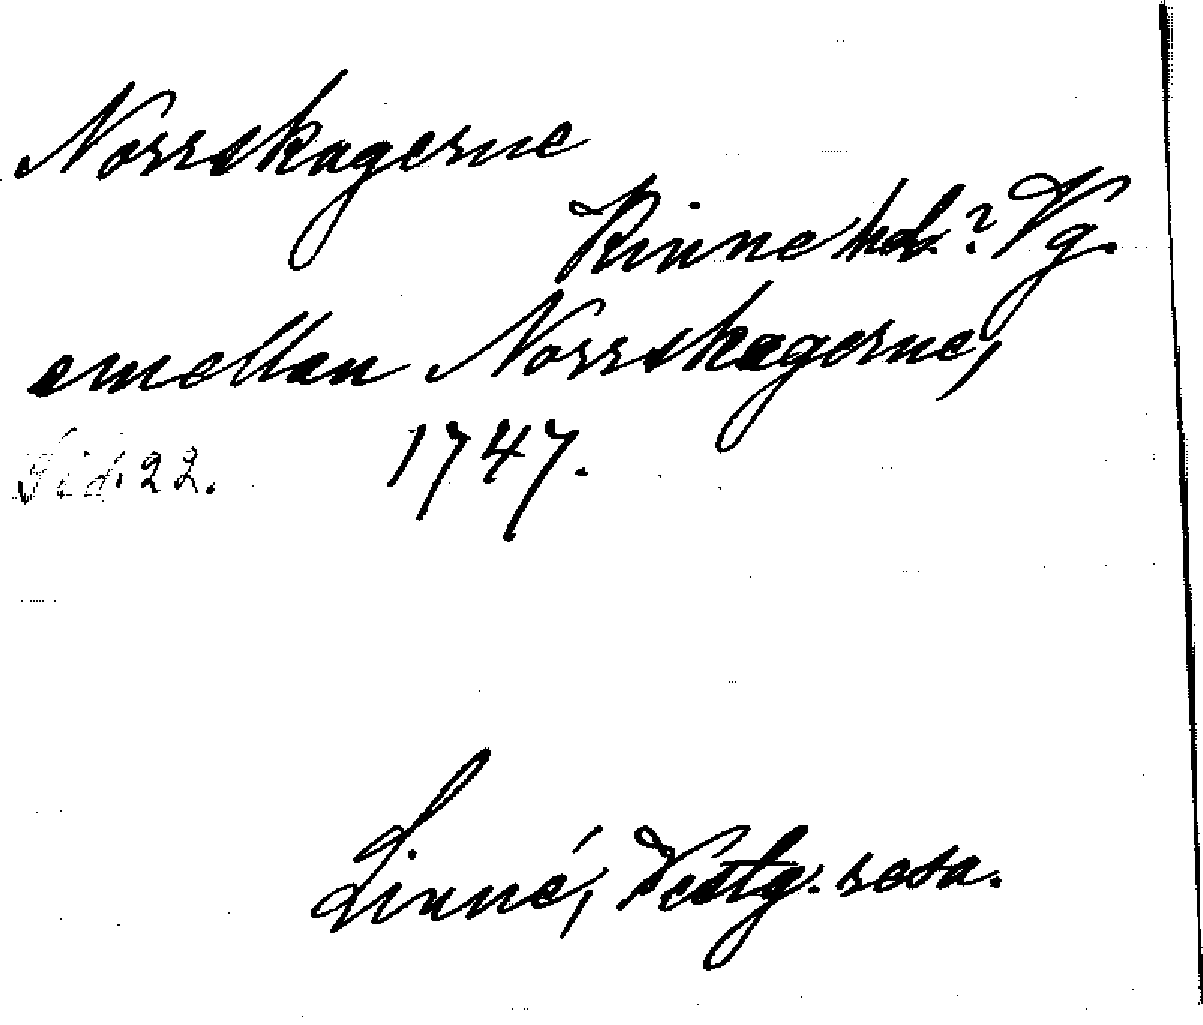 Norrskagerne
Kinne hd.? Vg.
emellan Norrskagerne,
Sid. 22. 1747.
Linné, Vestg. resa.